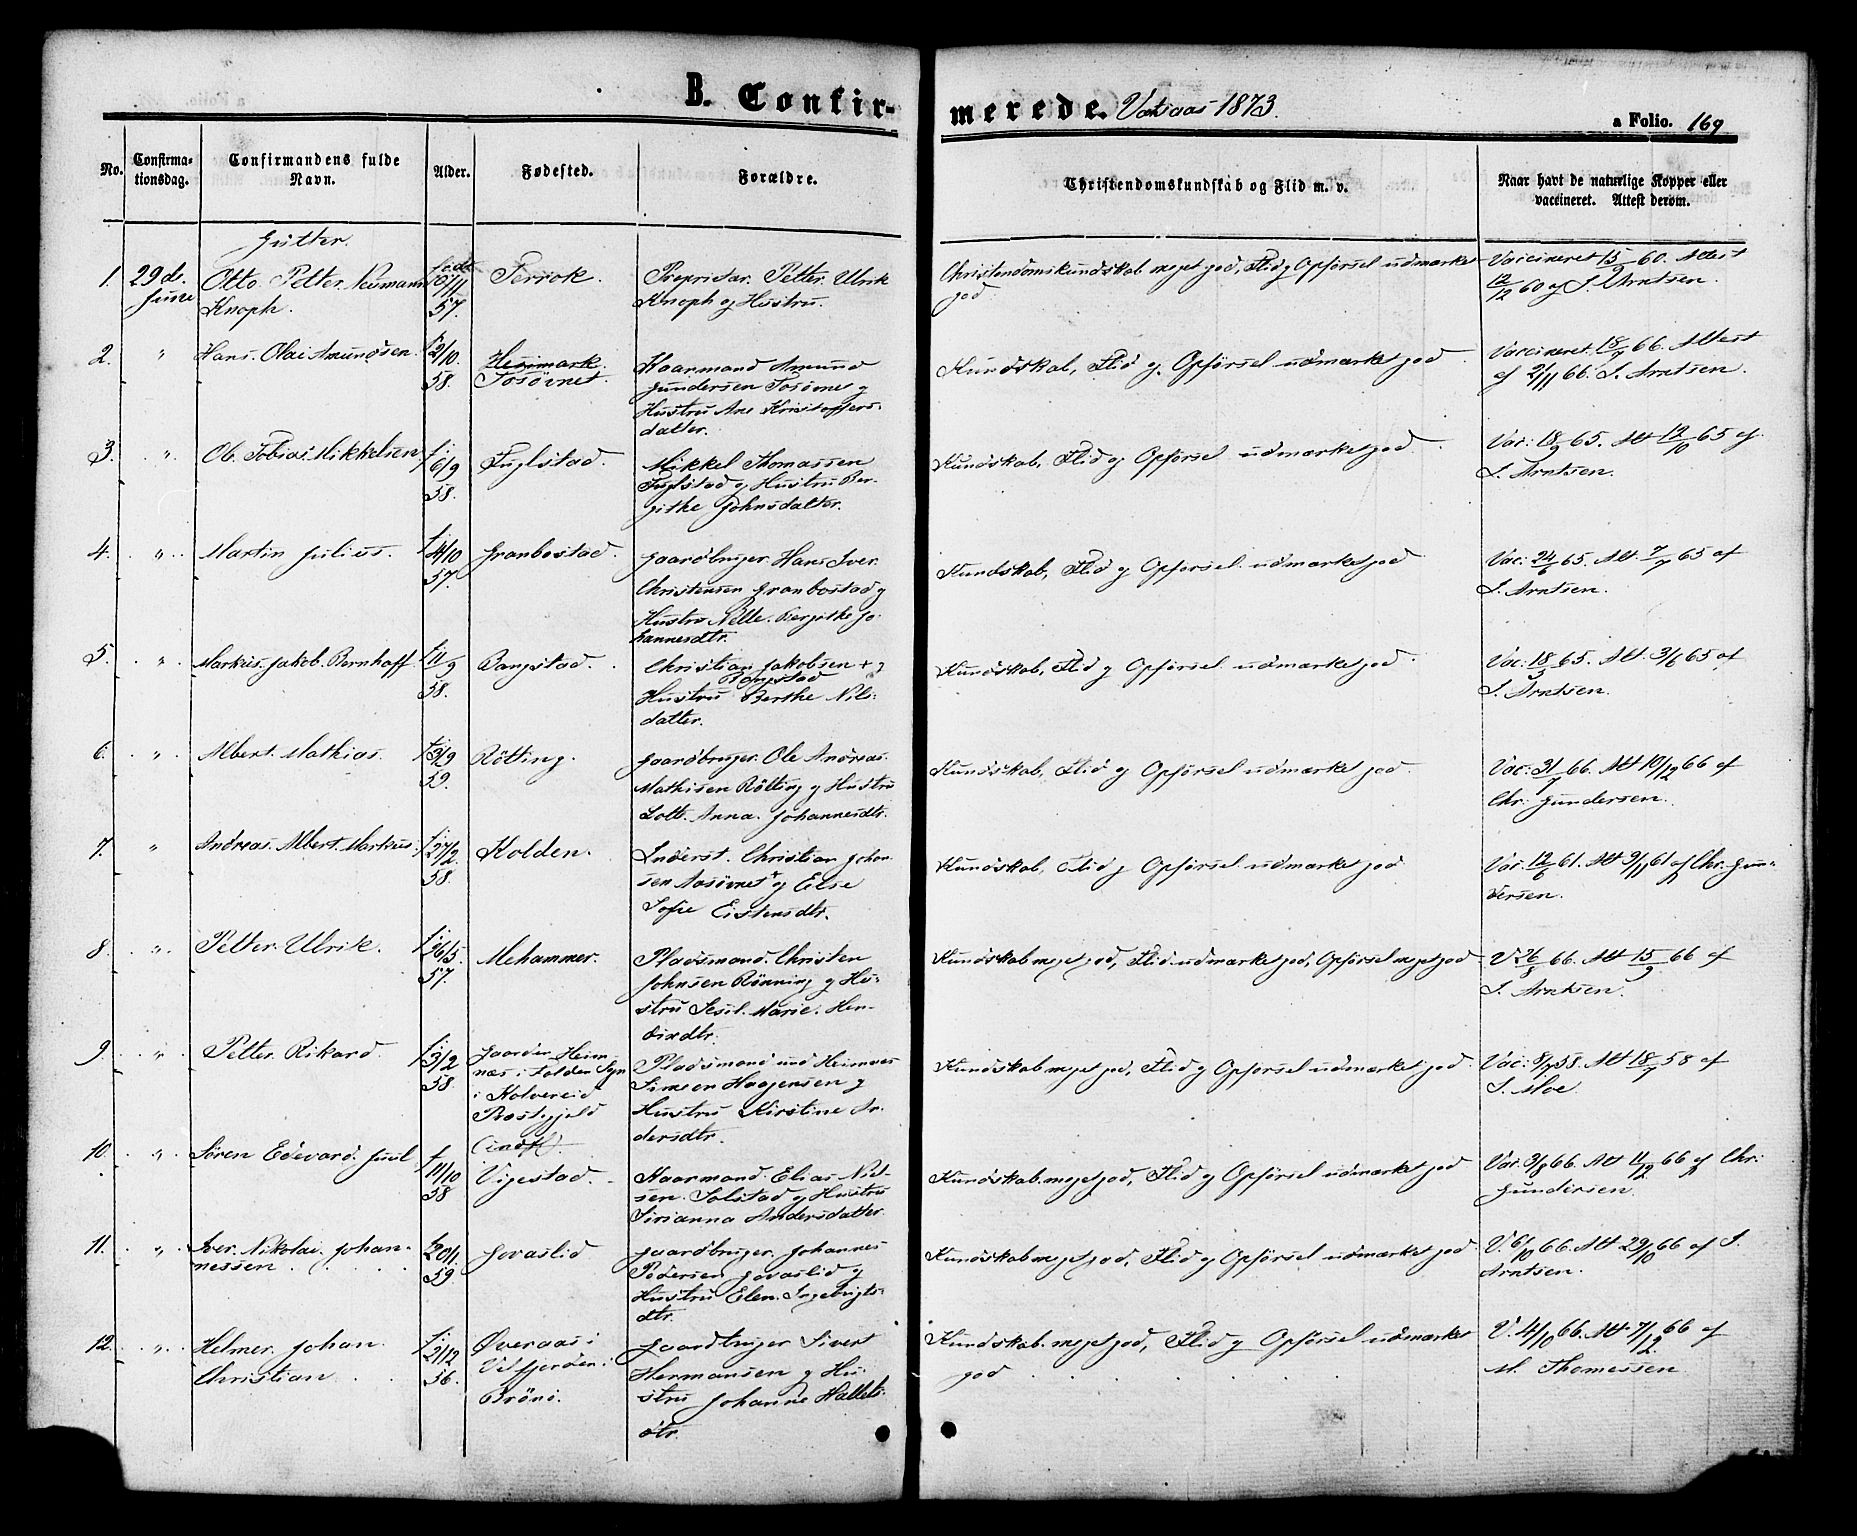 B. Confirmerede. Vatsaas 1873.
a Folio. 169
No.
Confirmationsdag.
Confirmandens fulde Navn.
Alder.
Fødested.
Forældre.
Christendomskundskab og Flid m. v.
Naar havt de naturlige Kopper eller vaccineret. Attest derom.
Gutter.
1. 29d. Juni
Otto Petter Neumann
Knoph.
født 10/11 57.
Terrok.
Proprietær Petter Ulrik
Knoph og Hustru.
Christendomskundskab meget god, Flid og Opførsel udmærket
god.
Vaccineret 15/9 60. Attest
12/12 60 af S. Arntsen.
2. "
Hans Olai Amundsen.
f. 2/10 58.
Heimark.
Tosøvnet.
Kaarmand Amund
Gundersen Tosøvnet og
Hustru Ane Kristoffers-
datter.
Kundskab, Flid og Opførsel udmærket god
Vaccineret 18/9 66. Attest
af 2/11 66. S. Arntsen.
3. "
Ole Tobias Mikkelsen
f. 6/9 58.
Fuglstad.
Mikkel Thomassen
Fuglstad og Hustru Ber-
githe Johnsdatter.
Kundskab, Flid og Opførsel udmærket god
Vac: 18/9 65. Att 12/10 65 af
S. Arntsen.
4. "
Martin Julius.
f. 4/10 57.
Granbostad.
Gaardbruger Hans Iver
Christensen Granbostad og
Hustru Nelle Bergithe Jo-
hannesdtr.
Kundskab, Flid og Opførsel udmærket god
Vac: 24/6 65. Att. 7/7 65 af
S. Arntsen.
5. "
Markus Jakob Bernhoff.
f. 11/9 58.
Bangstad.
Christian Jakobsen + og
Bangstad
Hustru Berthe Nils-
datter.
Kundskab, Flid og Opførsel udmærket god
Vac: 18/5 65. Att. 3/6 65 af
S. Arntsen.
6. "
Albert Mathias.
f. 3/2 59.
Røtting.
Gaardbruger Ole Andreas
Mathisen Røtting og Hustru
Lott. Anna Johannesdtr.
Kundskab, Flid og Opførsel udmærket god.
Vac: 31/7 66. Att 10/12 66 af
Chr. Gundersen.
7. "
Andreas Albert Markus.
f. 27/2 58.
Kolden.
Inderst. Christian Johan-
sen Aasøvnet og Else
Sofie Eistensdtr.
Kundskab, Flid og Opførsel udmærket god
Vac: 12/6 61. Att 9/11 61 af Chr. Gun-
dersen.
8. "
Petter Ulrik.
f. 26/5 57.
Mehammer.
Pladsmand Christen
Johnsen Rønning og Hu-
stru Sesil. Marie Hen-
dixdtr.
Kundskab meget god, Flid udmærket god, Opførsel meget god
V. 26/8 66. Att 15/9 66 af
S. Arntsen.
9. "
Petter Rikard.
f. 3/2 58.
Gaarden Heim-
næs i Folden Sogn
i Kolvereid
Præstegjeld
(indfl)
Pladsmand und. Heimnes
Simeon Haagensen og
Hustru Kirstine An-
dersdtr.
Kundskab meget god, Flid og Opførsel udmærket god
Vac: 8/7 58. Att 18/7 58 af
S. Moe.
10. "
Søren Edevard Juul
f. 11/10 58
Vigestad.
Kaarmand Elias Niel-
sen Solstad og Hustru
Sirianna Andersdatter.
Kundskab meget god, Flid og Opførsel udmærket god
Vac. 3/8 66. Att 11/2 66 af Chr.
Gundersen.
11. "
Iver Nikolai Johan-
nessen
f. 20/1 59.
Govaslid
Gaardbruger Johannes
Pedersen Govaslid og
Hustru Elen Ingebrigts-
dtr.
Kundskab meget god, Flid og Opførsel udmærket god
V. 6/10 66. Att 29/10 66 af S.
Arntsen.
12. "
Helmer Johan
Christian
f. 21/12 56.
Øveraas i
Velfjorden i
Brønø.
Gaardbruger Sivert
Hermansen og Hu-
stru Johanne Hallets-
dtr.
Kundskab meget god, Flid og Opførsel udmærket
god
V. 4/10 66. Att 7/12 66 af
M. Thomessen